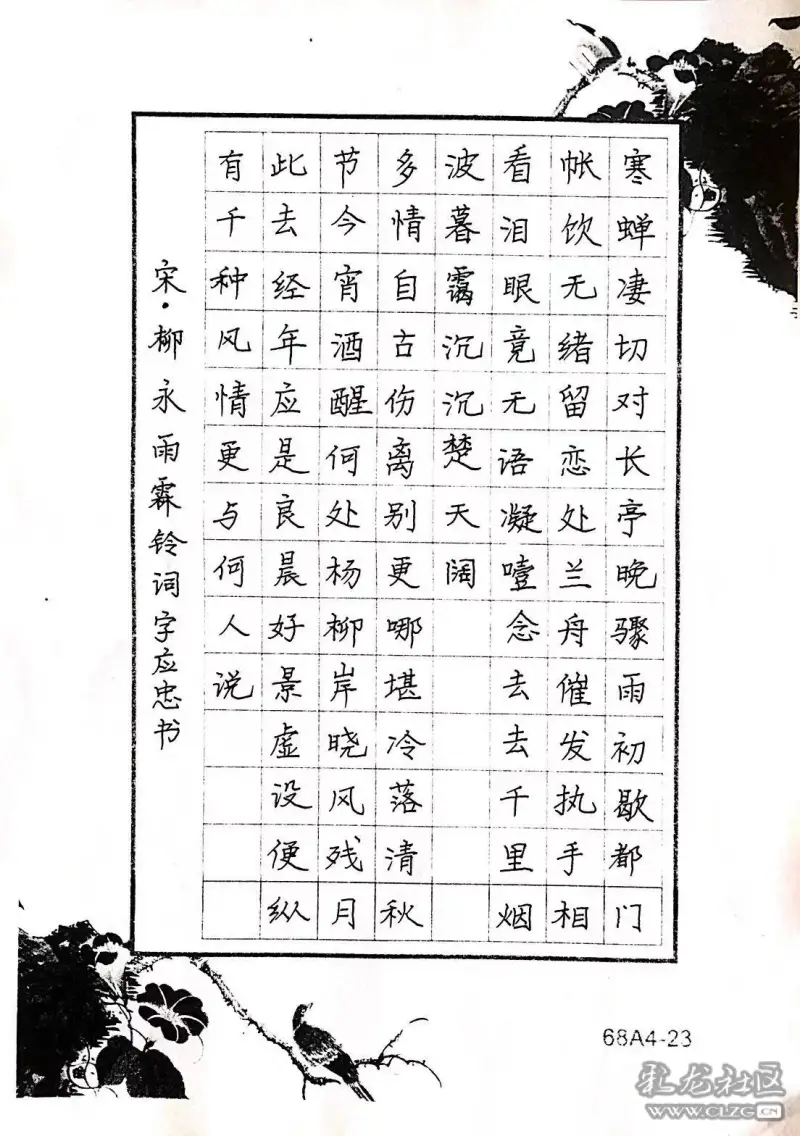 寒蝉凄切对长亭晚骤雨初歇都门
帐饮无绪留恋处兰舟催发执手相
看泪眼竟无语凝噎念去去千里烟
波暮霭沉沉楚天阔
多情自古伤离别更哪堪冷落清秋
节今宵酒醒何处杨柳岸晓风残月
此去经年应是良晨好景虚设便纵
有千种风情更与何人说
宋·柳永雨霖铃词字应忠书
68A4-23
龙社区
WWW.CLZG.CN